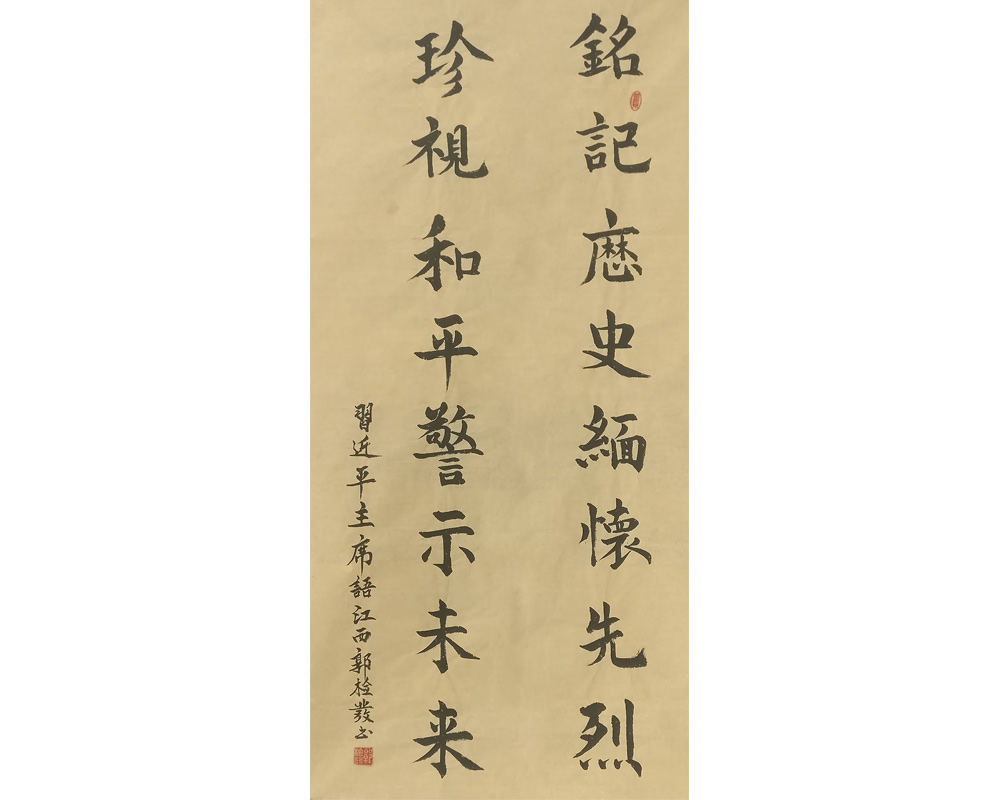 銘記歷史緬懷先烈
珍視和平警示未来
習近平主席語江西郭检發书